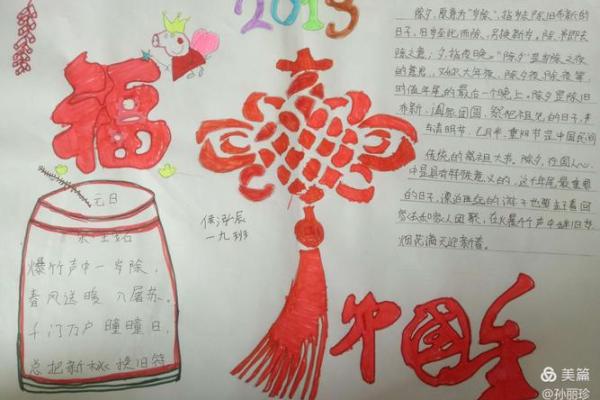 福
元日
爆竹声中一岁除,
春风送暖入屠苏。
千门万户曈曈日,
总把新桃换旧符
侯泓辰
一九班
除夕,原意为"岁除",指岁除旧布新的
日子,旧岁至此而除,另换新岁。除,本即去
除之意;夕,指夜晚。"除夕"是岁除之夜
的意思,又称大年夜、除夕夜、除夜等,
时值年尾的最后一个晚上。除夕是除旧
布新、阖家团圆、祭祀祖先的日子,
与清明节、七月半、重阳节是中国民间
传统的祭祖大节。除夕,在国人心
中是具有特殊意义的,这个年尾最重要
的日子,漂泊再远的游子也要赶着回
家去和家人团聚,在爆竹声中辞旧岁
烟花满天迎新春。
中國年
美篇
@孙丽珍